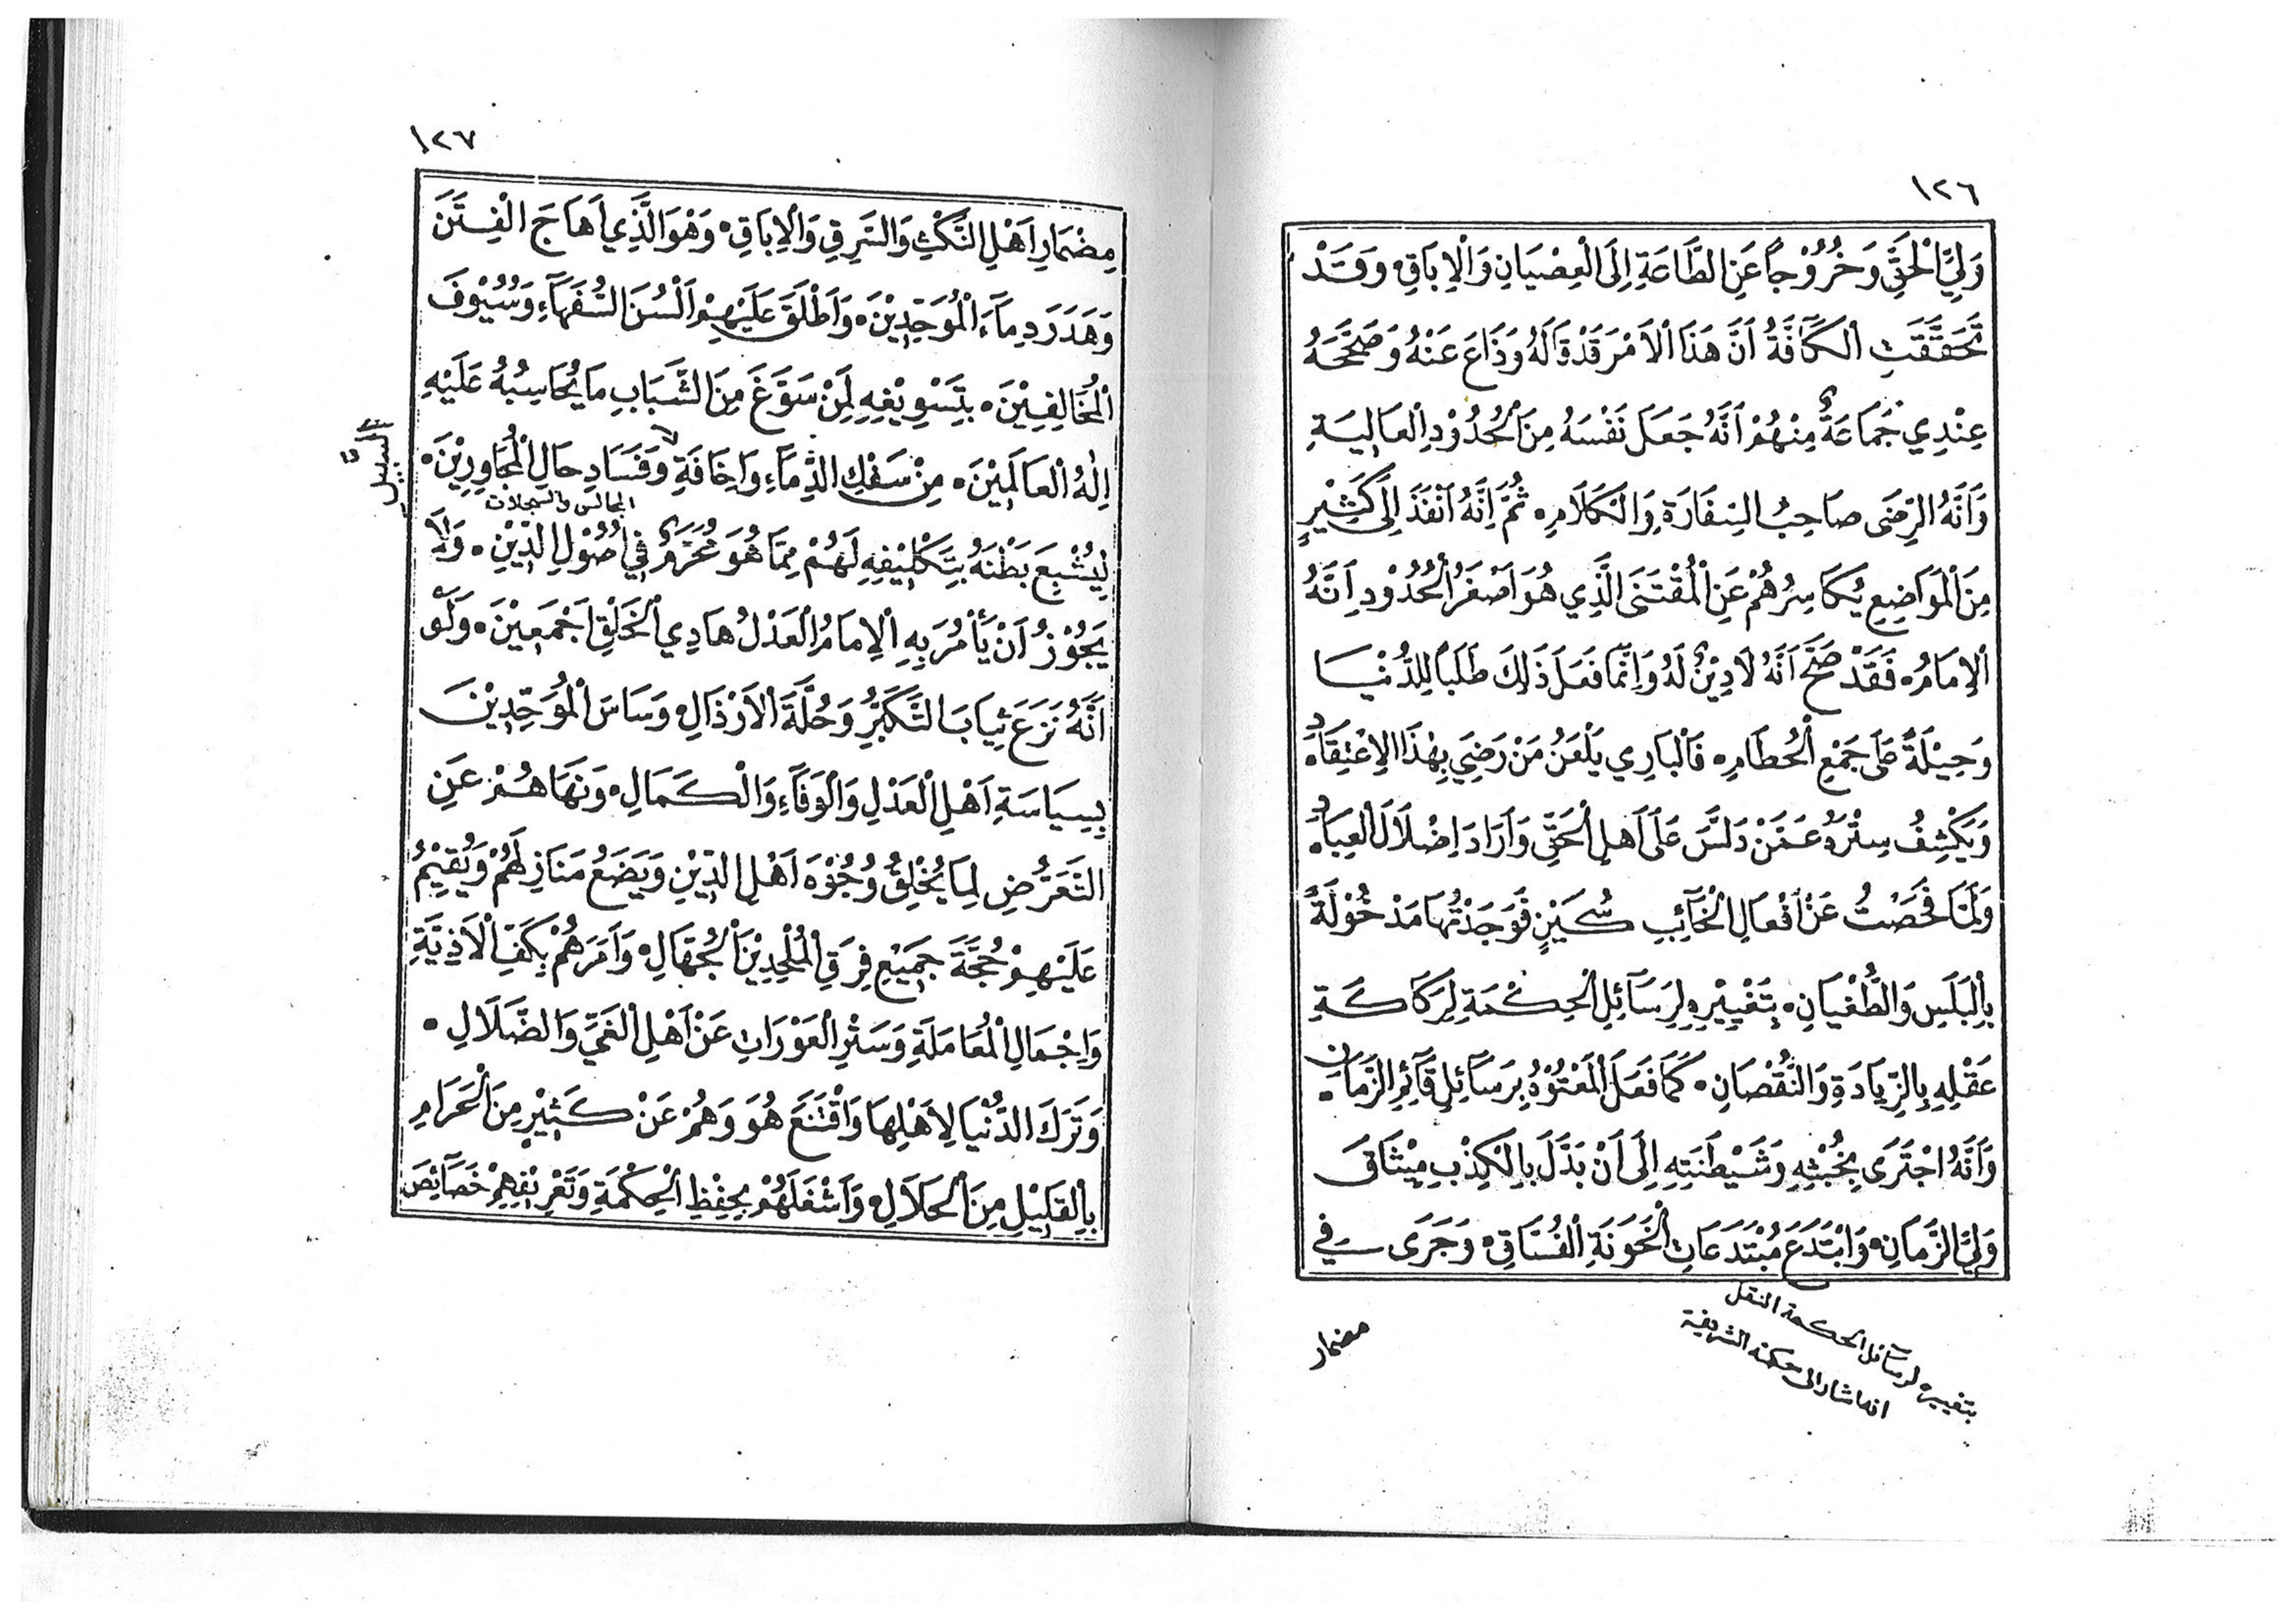 ١٢٦
وَلِيِّ الْحَقِّ وَخُرُوْجاً عَنِ الطَّاعَةِ اِلَى الْعِصْيَانِ وَالْاِبَاقِ٠ وَقَدْ
تَحَقَّقَتِ الْكَآفَّةُ اَنَّ هَذَا الْاَمْرَ قَدْ قَالَهُ وَذَاعَ عَنْهُ وَصَحَّحَهُ
عِنْدِي جَمَاعَةٌ مِنْهُمْ اَنَّهُ جَعَلَ نَفْسَهُ مِنَ الْحُدُوْدِ الْعَالِيَةِ
وَاَنَّهُ الرِّضَى صَاحِبُ السِّفَارَةِ وَالْكَلَامِ٠ ثُمَّ اِنَّهُ اَنْفَذَ اِلَى كَثِيْرٍ
مِنَ الْمَوَاضِعِ يُكَاسِرُهُمْ عَنِ الْمُقْتَنَى الَّذِي هُوَ اَصْغَرُ الْحُدُوْدِ اَنَّهُ
الْاِمَامُ٠ فَقَدْ صَحَّ اَنَّهُ لَا دِيْنٌ لَهُ وَاِنَّمَا فَعَلَ ذَلِكَ طَلَباً لِلدُّنْيَا
وَحِيْلَةً عَلَى جَمْعِ الْحُطَامِ٠ فَالْبَارِي يَلْعَنُ مَنْ رَضِيَ بِهْذَا الْاِعْتِقَادِ٠
وَيَكْشِفُ سِتْرَهُ عَمَّنْ دَلَّسَ عَلَى اَهْلِ الْحَقِّ وَاَرَادَ اِضْلَالَ الْعِبَادِ٠
وَلَمَّا فَحَصْتُ عَنْ اَفْعَالِ الْخَآئِبِ سُكَيْنٍ فَوَجَدْتُهَا مَدْخُوْلَةً
بِالْبَلَسِ وَالطُّغْيَانِ٠ بِتَغْيِيْرِهِ لِرَسَآئِلِ الْحِكْمَةِ لِرَكَاكَةِ
عَقْلِهِ بِالزِّيَادَةِ وَالنُّقْصَانِ٠ كَمَا فَعَلَ الْمَعْتُوْهُ بِرَسَآئِلِ قَآئِمِ الزَّمَانِ٠
وَاَنَّهُ اجْتَرَى بِخُبْثِهِ وَشَيْطَنَتِهِ اِلَى اَنْ بَدَّلَ بِالْكِذْبِ مِيْثَاقَ
وَلِيِّ الزَّمَانِ٠ وَابْتَدَعَ مُبْتَدَعَاتِ الْخَوَنَةِ الْفُسَّاقِ٠ وَجَرَى فِي
بتغييره لرسآئل الحكمة النقل
انه اشار الى حكمة الشريفة
مضمار
١٢٧
مِضْمَارِ اَهْلِ النَّكْثِ وَالسَّرِقِ وَالْاِبَاقِ٠ وَهْوَ الَّذِي اَهَاجَ الْفِتَنَ
وَهَدَرَ دِمَآءَ الْمُوَحِّدِيْنَ٠ وَاَطْلَقَ عَلَيْهِمْ اَلْسُنَ السُّفَهَآءِ وَسُيُوْفَ
الْمُخَالِفِيْنَ٠ بِتَسْوِيْغِهِ لِمَنْ سَوَّغَ مِنَ الشَّبَابِ مَا يُحَاسِبُهُ عَلَيْهِ
اِلٰهُ الْعَالَمِيْنَ٠ مِنْ سَفْكِ الدِّمَآءِ وَاِخَافَةِ وَفَسَادِ حَالِ الْمُجَاوِرِيْنَ٠
السبيل
المجالس والسجلات
لِيُشْبِعَ بَطْنَهُ بِتَكْلِيْفِهِ لَهُمْ مِمَّا هُوَ مُحَرَّمٌ فِي اُصُوْلِ الدِّيْنِ٠ وَلَا
يَجُوْزُ اَنْ يَأْمُرَ بِهِ الْاِمَامُ الْعَدْلُ هَادِي الْخَلْقِ اَجْمَعِيْنَ٠ وَلَوْ
اَنَّهُ نَزَعَ ثِيَابَ التَّكَبُّرِ وَحُلَّةَ الْاَرْذَالِ٠ وَسَاسَ الْمُوَحِّدِيْنَ
بِسِيَاسَةِ اَهْلِ الْعَدْلِ وَالْوَفَآءِ وَالْكَمَالِ٠ وَنَهَاهُمْ عَنِ
التَّعَرُّضِ لِمَا يُخْلِقُ وُجُوْهَ اَهْلِ الدِّيْنِ وَيَضَعُ مَنَازِلَهُمْ وَيُقِيْمُ
عَلَيْهِمْ حُجَّةَ جَمِيْعِ فِرَقِ الْمُلْحِدِيْنَ الْجُهَّالِ٠ وَاَمَرَهُمْ بِكَفِّ الْاَذِيَّةِ
وَاِجْمَالِ الْمُعَامَلَةِ وَسَتْرِ الْعَوْرَاتِ عَنْ اَهْلِ الْغَيِّ وَالضَّلَالِ٠
وَتَرَكَ الدُّنْيَا لِاَهْلِهَا وَاقْتَنَعَ هُوَ وَهُمْ عَنْ كَثِيْرٍ مِنَ الْحَرَامِ
بِالْقَلِيْلِ مِنَ الْحَلَالِ٠ وَاَشْغَلَهُمْ بِحِفْظِ الْحِكْمَةِ وَتَعْرِيْفِهِمْ خَصَآئِصَ